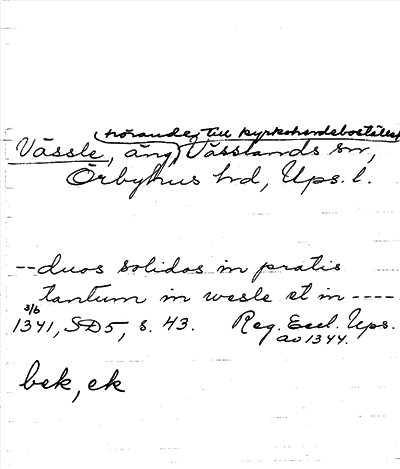 (hörande till kyrkoherdebostället
Vässle, äng, Vässlands sn,
Örbyhus hd, Ups. l.
--duos solidos in pratis
tantum in wesle et in ----
3/6
1341, SD5, s. 43. Reg. Eccl. Ups.
av 1344.
bek, ek